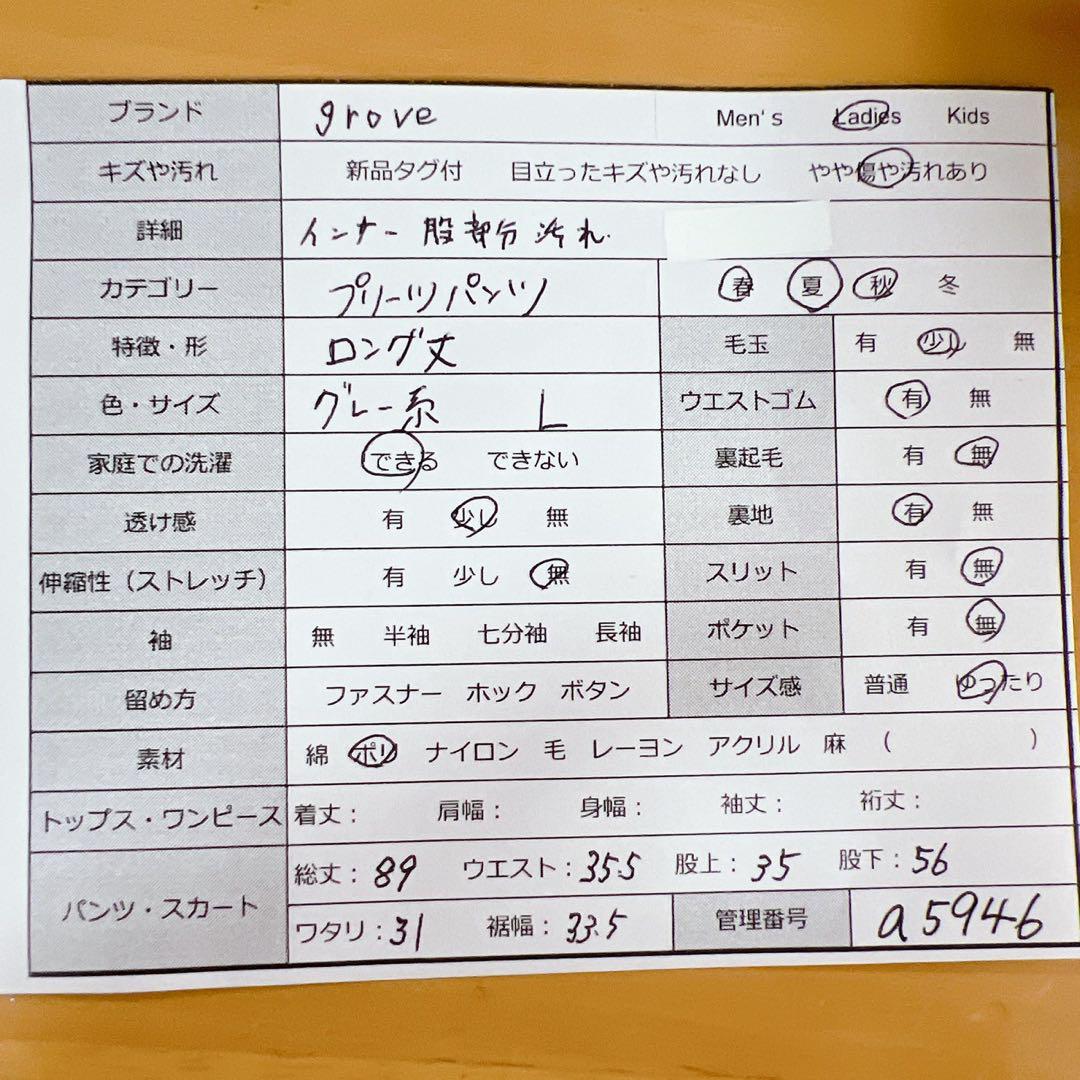 ブランド grove Men's Ladies Kids
キズや汚れ 新品タグ付 目立ったキズや汚れなし やや傷や汚れあり
詳細 インナー股部分汚れ.
カテゴリー プリーツパンツ 春 夏 秋 冬
特徴・形 ロング丈 毛玉 有 少し 無
色・サイズ グレー系 L ウエストゴム 有 無
家庭での洗濯 できる できない 裏起毛 有 無
透け感 有 少し 無 裏地 有 無
伸縮性（ストレッチ） 有 少し 無 スリット 有 無
袖 無 半袖 七分袖 長袖 ポケット 有 無
留め方 ファスナー ホック ボタン サイズ感 普通 ゆったり
素材 綿 ポリ ナイロン 毛 レーヨン アクリル 麻 （ ）
トップス・ワンピース 着丈： 肩幅： 身幅： 袖丈： 裄丈：
パンツ・スカート 総丈：89 ウエスト：35.5 股上：35 股下：56
ワタリ：31 裾幅：33.5 管理番号 a5946